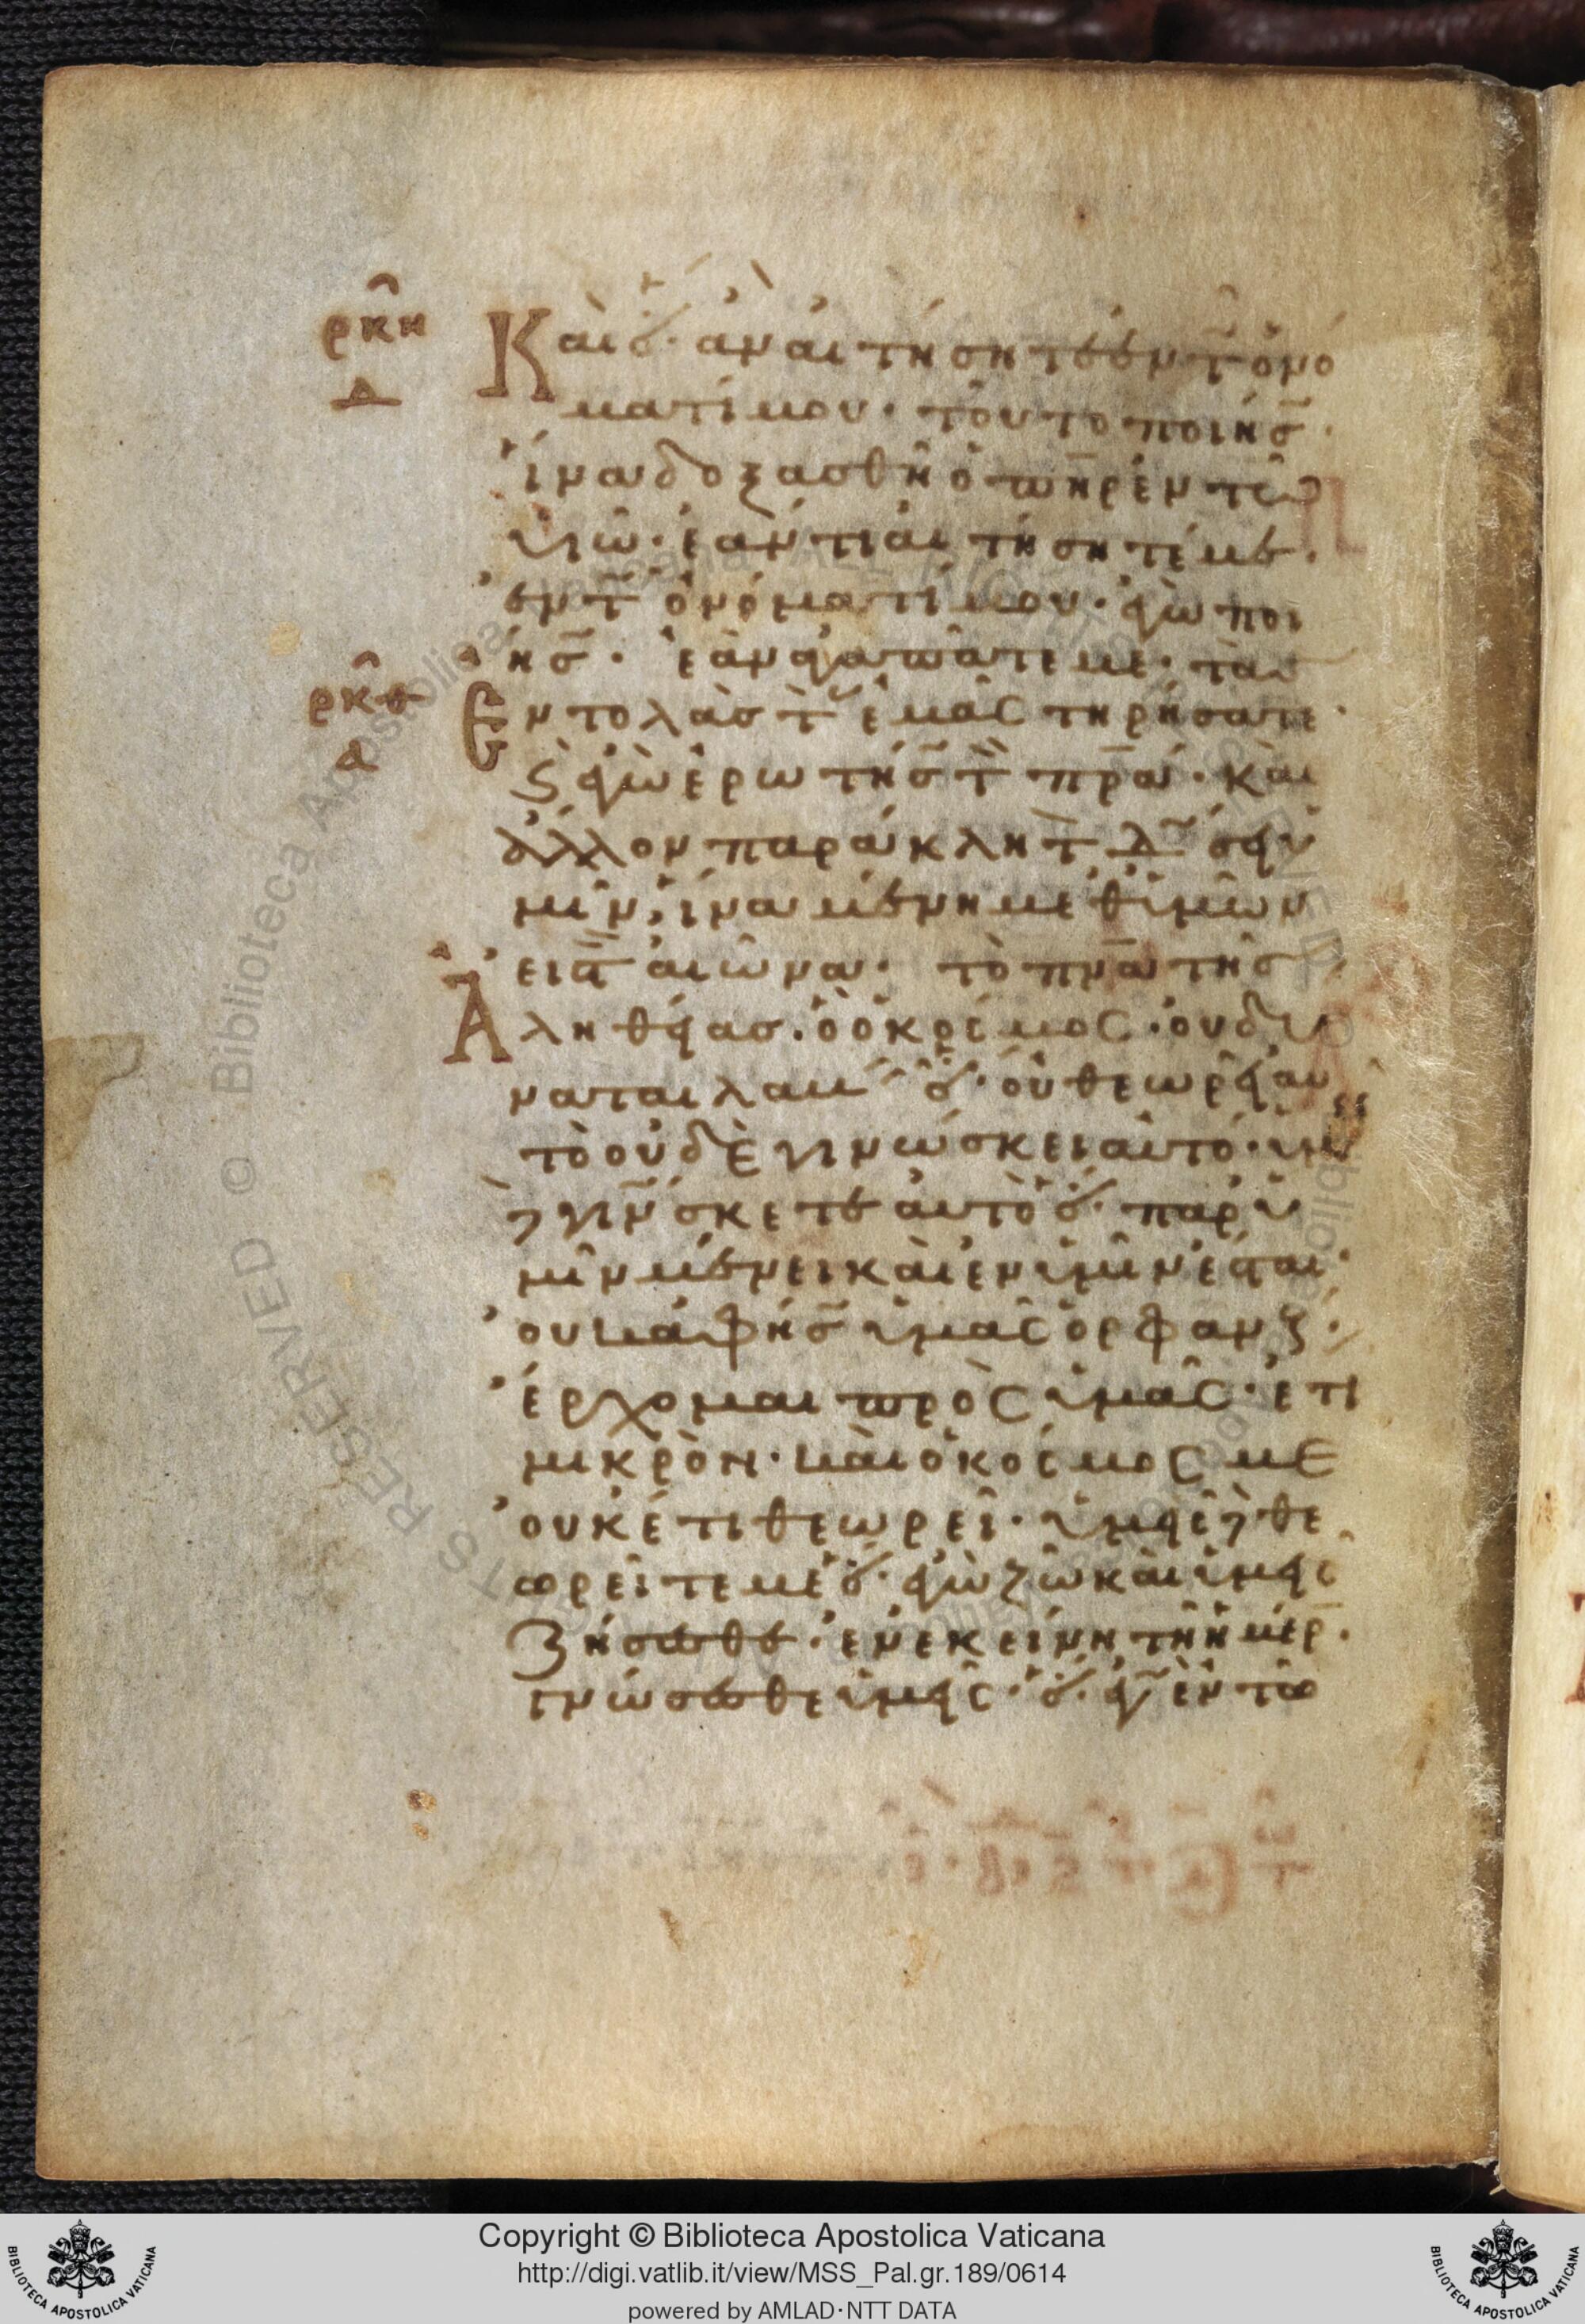 ρκη
Δ
Καὶ ὅ ἀν αἰτήσητε ἐν τῶ ὀνό
ματί μου· τοῦτο ποιήσ̃·
ἵνα δοξασθῆ ὁ πη̅ρ ἐν τῶ
υἱῶ· ἐάν τι αἰτήσητέ με·
ἐν τ̃ ὀνόματί μου· ἐγὼ ποι
ήσ̃· ἐὰν ἀγαπᾶτε με· τὰσ
ρκθ
Δ
Ἐντολὰσ τ̃ ἐμὰς τηρήσατε·
ϛ̀ ἐγὼ ἐρωτήσ̃ τ̃ πρ̅α· καὶ
ἄλλον παράκλητ̅ δώσει ὑ
μῖν, ἵνα μένη μεθ ὑμῶν
εἰς τ̅ αἰῶνα· τὸ πν̅α τῆσ
Ἀληθείασ· ὃ ὁ κόσμος· οὐ δύ
ναται λαμ ὅ· οὐ θεωρεῖ αυ
τὸ οὐδὲ γινώσκει αὐτό· ὑμ
γινώσκετε αὐτὸ ὅ· παρ ὑ
μῖν μένει καὶ ἐν ὑμῖν ἔσται·
οὐκ ἀφήσ̃ ὑμᾶς ὀρφαν·
ἔρχομαι πρὸς ὑμᾶς· ἔτι
μικρὸν· καὶ ὁ κόσμος με
οὐκέτι θεωρεῖ· ὑμεῖ θε
ωρεῖτε με ὅ· ἐγὼ ζῶ καὶ ὑμεῖς
Ζήσεσθε· ἐν ἐκείνη τῆ ἡμέρ̅·
γνώσεσθε ὑμεῖς· ὅ· ἐγ̃ ἐν τῶ
Copyright © Biblioteca Apostolica Vaticana
http://digi.vatlib.it/view/MSS_Pal.gr.189/0614
powered by AMLAD·NTT DATA